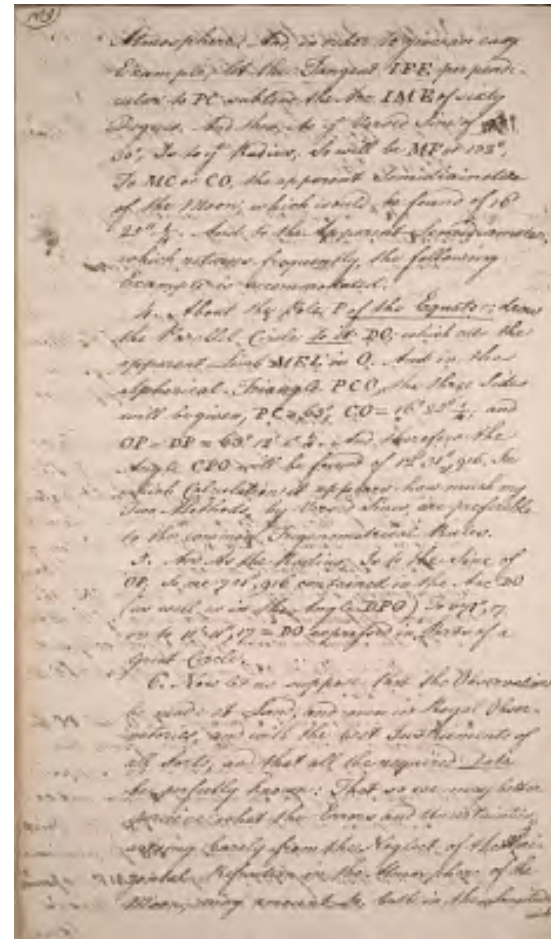 Atmosphere. And, in order to give an easy
Example, let the Tangent IFE perpendi-
cular to PC subtend the Arc IME of sixty
Degrees. And then, As yᵉ Versed Sine of
30°, Is to yᵉ Radius, So will be MF or 132",
To MC or CO, the apparent Semidiameter
of the Moon; which would be found of 16'
25" ¼. And to the Apparent Semidiameter,
which returns frequently, the following
Example is accommodated.
4. About the Pole P of the Equator, draw
the Parallel Circle to it DO, which cuts the
apparent Limb MEL in O. And in the
Spherical Triangle PCO, the three Sides
will be given, PC = 63°, CO = 16' and
OP = DP = 63° 12' And therefore the
Angle CPO will be found of In
which Calculation it appears how much my
Two Methods, by Versed Sines, are preferable
to the common Trigonometrical Rules.
5. And As the Radius, Is to the Sine of
OP, So are 721",916 contained in the Arc DO
(as well as in the Angle DPO) To
or to 17 = DO expressed in Parts of a
great Circle.
6. Now let us suppose, that the Observations
be made at Land, and even in Royal Obser-
vatories, and with the best Instruments of
all sorts, and that all the required Data
be perfectly known: That so we may better
perceive what the Errors and Uncertainties
arising barely from the Neglect of the Hori-
zontal Refraction in the Atmosphere of the
Moon, may amount to, both in the